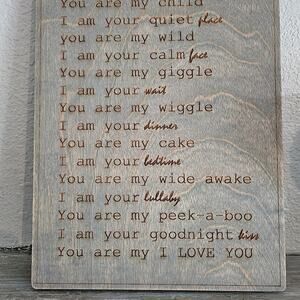 You are my child
I am your quiet place
you are my wild
I am your calm face
You are my giggle
I am your wait
You are my wiggle
I am your dinner
You are my cake
I am your bedtime
You are my wide awake
I am your lullaby
You are my peek-a-boo
I am your goodnight kiss
You are my I LOVE YOU